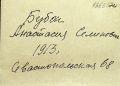 Бубон
Анастасия Семенов
1913,
Севастопольская 68